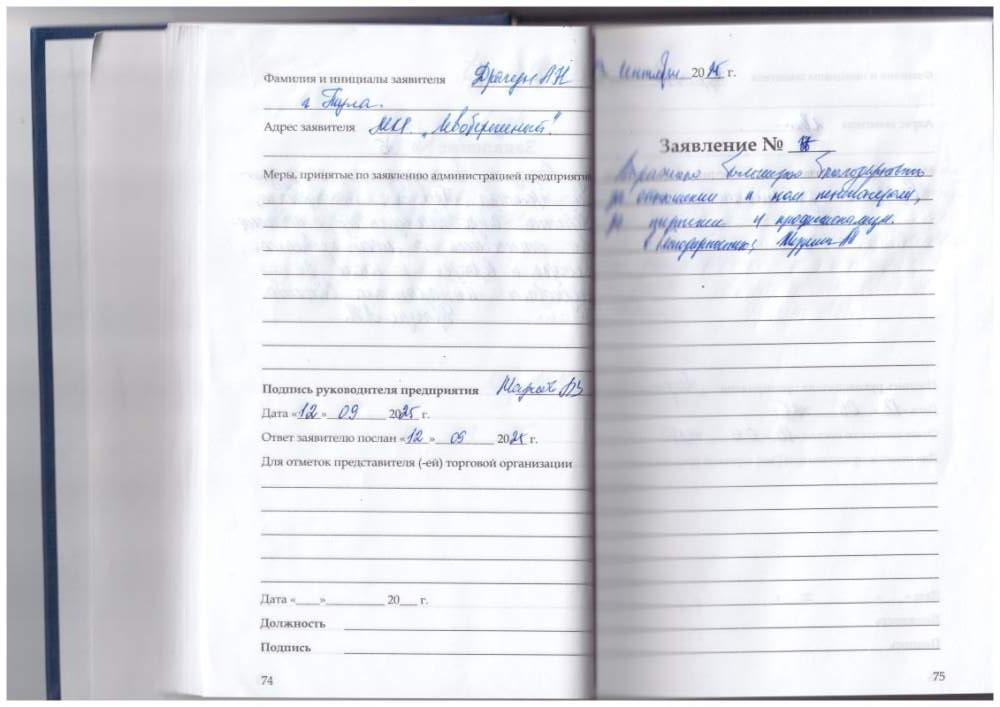 Фамилия и инициалы заявителя Драгун АН
г Тула.
Адрес заявителя МКД. „Левобережный"
Меры, принятые по заявлению администрацией предприятия
Подпись руководителя предприятия
Дата «12» 09 2025 г.
Ответ заявителю послан «12» 09 2025 г.
Для отметок представителя (-ей) торговой организации
Дата «____»__________ 20___ г.
Должность
Подпись
74
сентября 2025 г.
Заявление №
Выражаю большую благодарность
за отношение к нам пенсионерам,
за терпение и профессионализм.
с благодарностью,
75